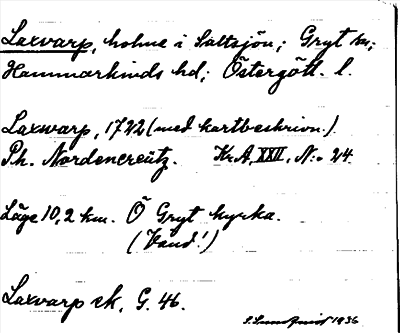 Laxvarp, holme i Saltsjön; Gryt sn;
Hammarkinds hd; Östergötl. l.
Laxwarp, 1722 (med kartbeskrivn.)
Ph. Nordencreütz. Kr.A, XXII, N:o 24.
Läge 10,2 km. Ö Gryt kyrka.
(Vänd!)
Laxvarp ek, G. 46.
1936